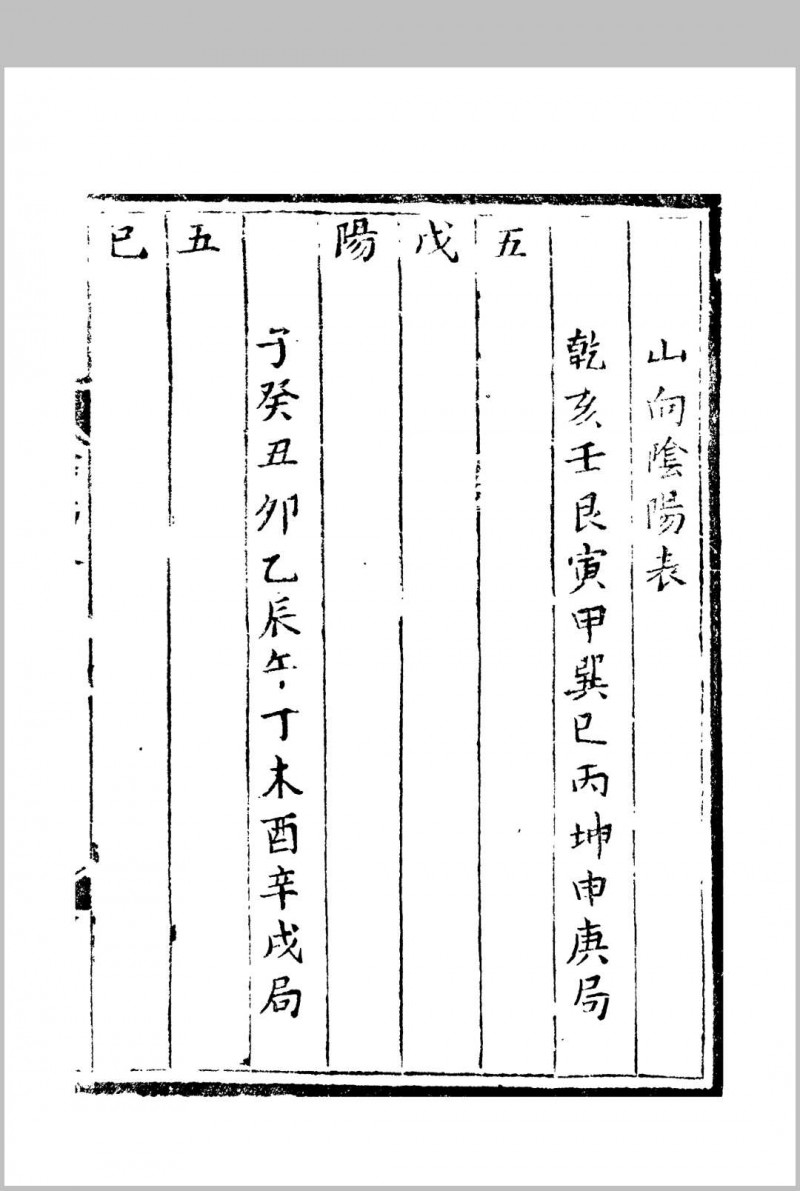 山向陰陽表
乾亥壬艮寅甲巽巳丙坤申庚局
五
戊
陽
子癸丑卯乙辰午丁未酉辛戌局
五
己